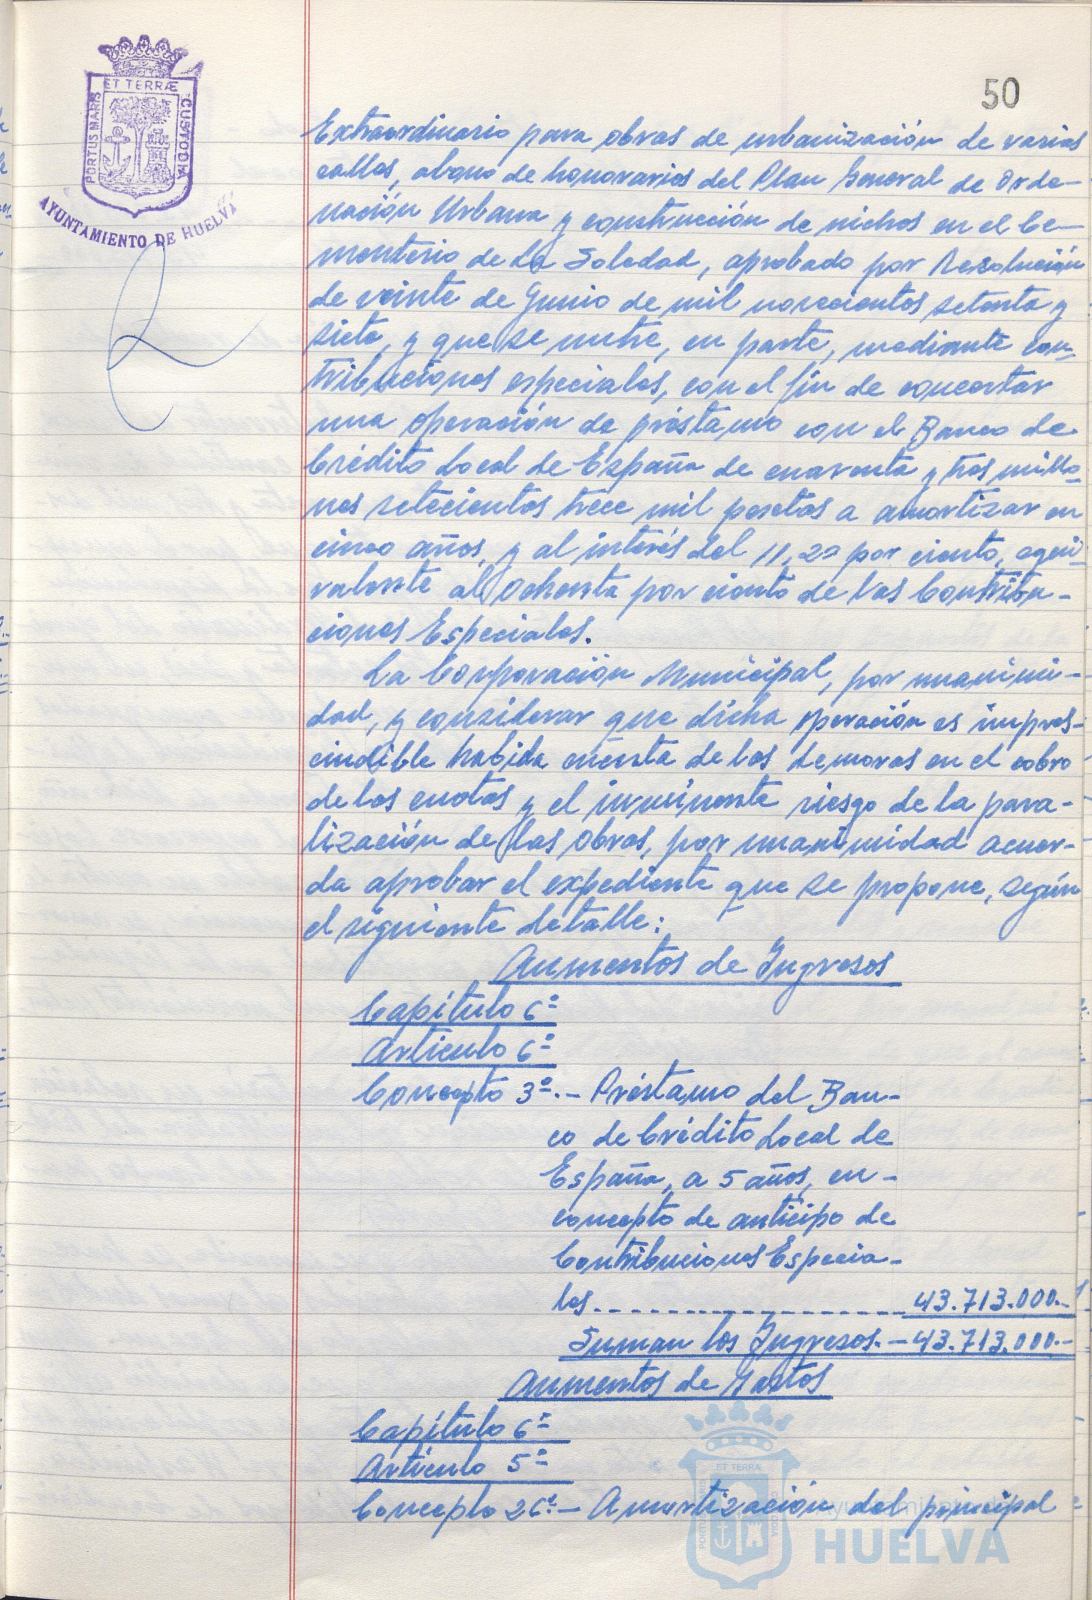 50
ET TERRÆ
PORTUS MARIS
CUSTODIA
AYUNTAMIENTO DE HUELVA
Extraordinario para obras de urbanización de varias
calles, abono de honorarios del Plan General de Orde-
nación Urbana y construcción de nichos en el Ce-
menterio de La Soledad, aprobado por Resolución
de veinte de Junio de mil novecientos setenta y
siete, y que se nutre, en parte, mediante con-
tribuciones especiales, con el fin de concertar
una operación de préstamo con el Banco de
Crédito Local de España de cuarenta y tres millo-
nes setecientos trece mil pesetas a amortizar en
cinco años, y al interés del 11,20 por ciento, equi-
valente al ochenta por ciento de las Contribu-
ciones Especiales.
La Corporación Municipal, por unanimi-
dad, y considerar que dicha operación es impres-
cindible habida cuenta de las demoras en el cobro
de las cuotas y el inminente riesgo de la para-
lización de las obras, por unanimidad acuer-
da aprobar el expediente que se propone, según
el siguiente detalle:
Aumentos de Ingresos
Capítulo 6º
Artículo 6º
Concepto 3º.- Préstamo del Ban-
co de Crédito Local de
España, a 5 años, en-
concepto de anticipo de
Contribuciones Especia-
les.------------------43.713.000.-
Suman los Ingresos.-43.713.000.-
Aumentos de Gastos
Capítulo 6º
Artículo 5º
Concepto 26º- Amortización del principal
ET TERRÆ
Ayuntamiento de
HUELVA